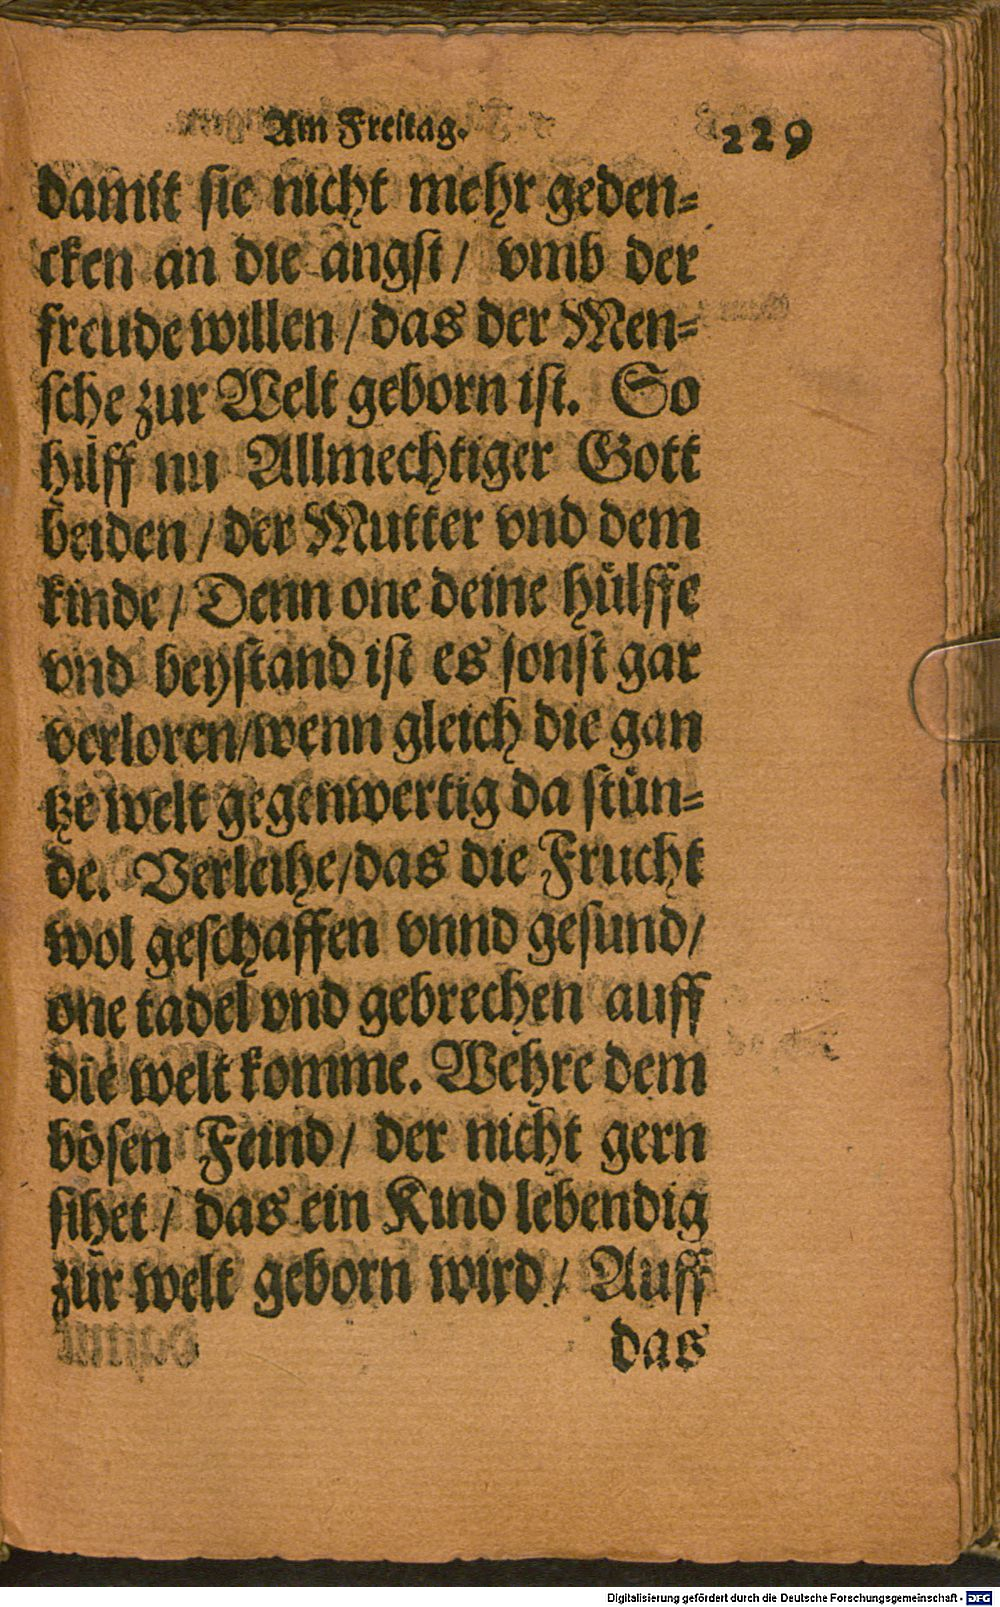 Am Freitag. 229
damit sie nicht mehr geden-
cken an die angst / vmb der
freude willen / das der Men-
sche zur Welt geborn ist. So
hilff nu Allmechtiger Gott
beiden / der Mutter vnd dem
kinde / Denn one deine hülffe
vnd beystand ist es sonst gar
verloren / wenn gleich die gan
tze welt gegenwertig da stün-
de. Verleihe / das die Frucht
wol geschaffen vnnd gesund /
one tadel vnd gebrechen auff
die welt komme. Wehre dem
bösen Feind / der nicht gern
sihet / das ein Kind lebendig
zur welt geborn wird / Auff
das
Digitalisierung gefördert durch die Deutsche Forschungsgemeinschaft - DFG